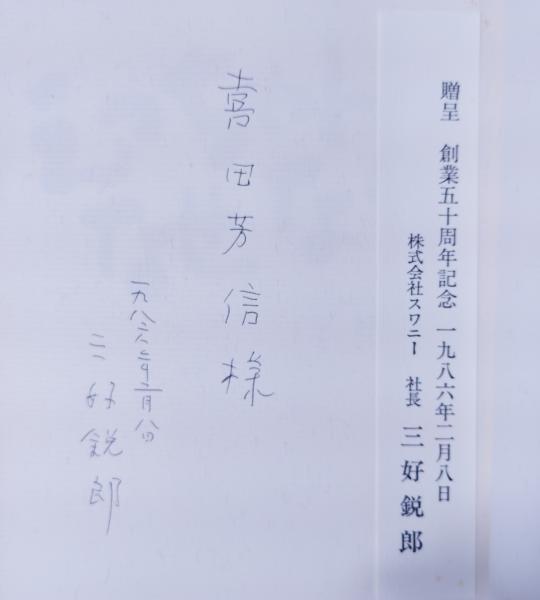 贈呈 創業五十周年記念 一九八六年二月八日
株式会社スワニー 社長 三好鋭郎
喜田芳信様
一九八六年二月八日
三好鋭郎